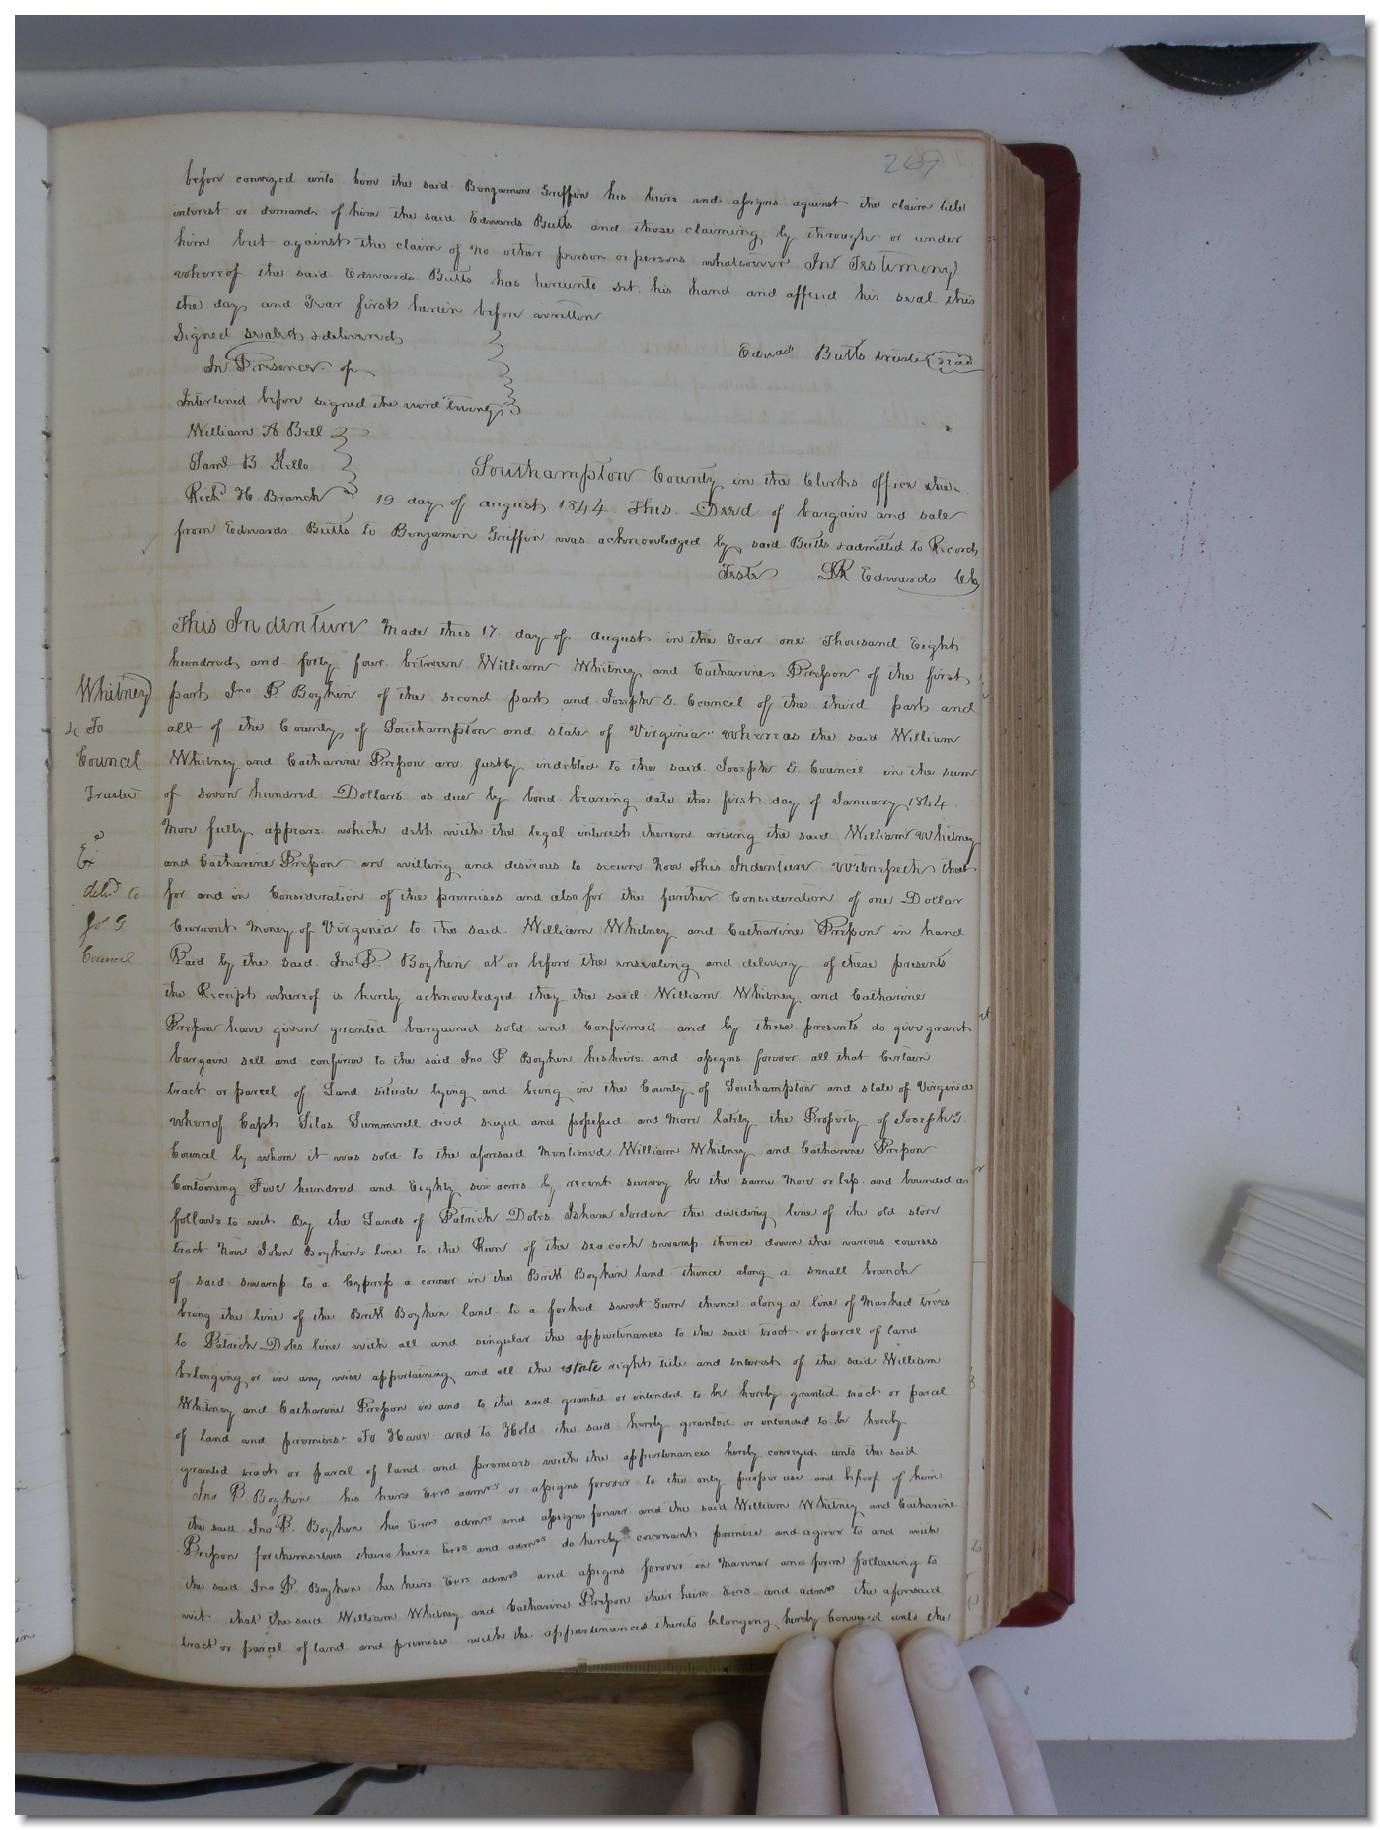 267
before conveyed unto him the said Benjamin Griffin his heirs and assigns against the claim title
interest or demands of him the said Edwards Butts and those claiming by through or under
him but against the claim of no other person or persons whatsoever In Testimony
whereof the said Edwards Butts has hereunto set his hand and affixed his seal this
the day and Year first herein before written
Signed sealed & delivered
In Presence of
Edwds Butts trustee seal
Interlined before signed the word "living"
William A Bell
Saml B. Kello
Southampton County in the Clerks office the
Richd H. Branch 19 day of August 1844 This Deed of bargain and sale
from Edwards Butts to Benjamin Griffin was acknowledged by said Butts & admitted to Record
Teste LR Edwards Clk
This Indenture Made this 17 day of August in the Year one Thousand Eight
hundred and forty four between William Whitney and Catharine Presson of the first
Whitney
part Jno P. Boykin of the second part and Joseph G. Council of the third part and
& To
all of the County of Southampton and state of Virginia whereas the said William
Council
Whitney and Catharine Presson are justly indebted to the said Joseph G. Council in the sum
Trustee
of seven hundred Dollars as due by bond bearing date the first day of January 1844
More fully appears which debt with the legal interest thereon arising the said William Whitney
and Catharine Presson are willing and desirous to secure Now This Indenture Witnesseth that
deld to
for and in Consideration of the premises and also for the further Consideration of one Dollar
Jos G
Current Money of Virginia to the said William Whitney and Catharine Presson in hand
Council
Paid by the said Jno P. Boykin at or before the ensealing and delivery of these presents
the Receipt whereof is hereby acknowledged they the said William Whitney and Catharine
Presson have given granted bargained sold and Confirmed and by these presents do give grant
bargain sell and confirm to the said Jno P Boykin his heirs and assigns forever all that Certain
tract or parcel of Land situate lying and being in the County of Southampton and state of Virginia
whereof Capt Silas Summerell died seized and possessed and More lately the Property of Joseph G.
Council by whom it was sold to the aforesaid Mentioned William Whitney and Catharine Presson
Containing Five hundred and Eighty six acres by recent survey be the same More or less and bounded as
follows to wit By the Lands of Patrick Doles Isham Jordin the dividing line of the old store
tract Now John Boykins line to the Run of the seacock swamp thence down the various courses
of said swamp to a Cypress a corner in the Britt Boykin land thence along a small branch
being the line of the Britt Boykin land to a forked sweet Gum thence along a line of Marked trees
to Patrick Doles line with all and singular the appurtenances to the said tract or parcel of land
belonging or in any wise appertaining and all the state right title and interest of the said William
Whitney and Catharine Presson in and to the said granted or intended to be hereby granted tract or parcel
of land and premises To Have and to Hold the said hereby granted or intended to be hereby
granted tract or parcel of land and premises with the appurtenances hereby conveyed unto the said
Jno P Boykin his heirs Exrs admrs or assigns forever to the only proper use and behoof of him
the said Jno P. Boykin his Exrs admrs and assigns forever and the said William Whitney and Catharine
Presson for themselves theirs heirs Exrs and admrs do hereby covenant promise and agree to and with
the said Jno P. Boykin his heirs Exrs admrs and assigns forever in Manner and form following to
wit that the said William Whitney and Catharine Presson their heirs Exrs and admrs the aforesaid
tract or parcel of land and premises with the appurtenances thereto belonging hereby Conveyed unto the